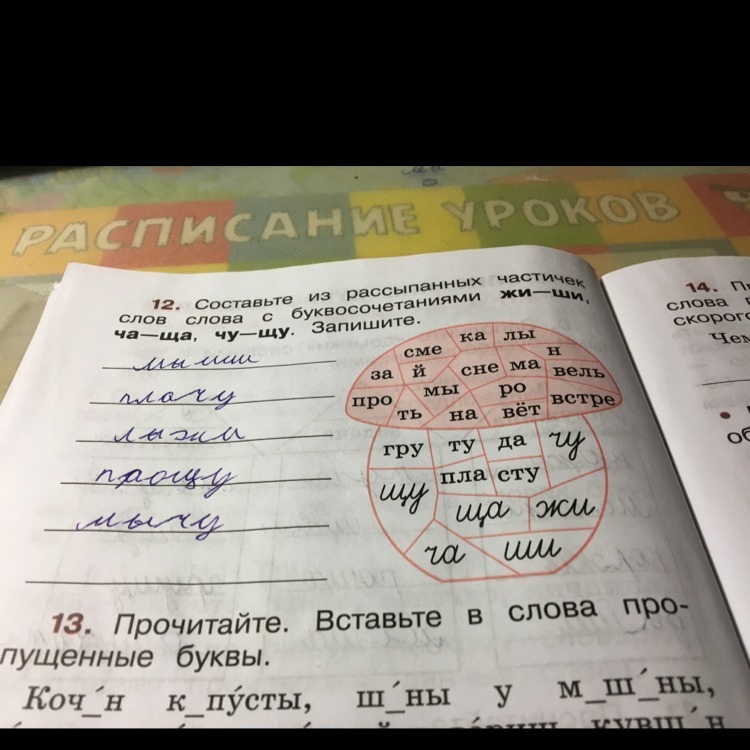 РАСПИСАНИЕ УРОКОВ
12. Составьте из рассыпанных частичек
слов слова с буквосочетаниями жи—ши,
ча—ща, чу—щу. Запишите.
мыши
плачу
лыжи
прощу
мычу
сме ка лы
за й сне ма н вель
про мы ро встре
ть на вёт
гру ту да чу
щу пла сту
ща жи
ча ши
13. Прочитайте. Вставьте в слова про-
пущенные буквы.
Коч_́н к_пу́сты, ш_́ны у м_ш_́ны,
14. П
слова
скорог
Чем
об